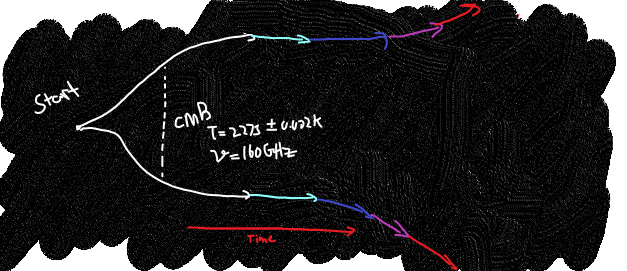 Start
CMB
T=2275 ± 0.022K
ν=160GHz
Time